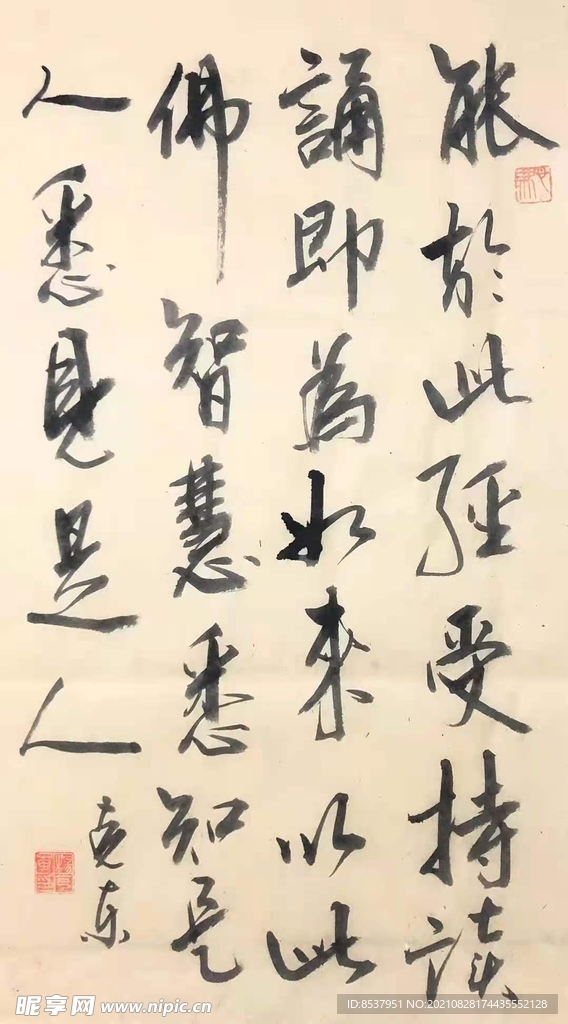 能於此經受持讀
誦即為如來以此
佛智慧悉知是
人悉見是人
克東
昵享网 www.nipic.cn
ID:8537951 NO:20210828174435552128